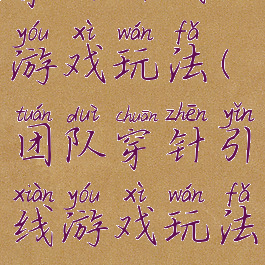 yóu xì wán fǎ
游戏玩法(
tuán duì chuān zhēn yǐn
团队穿针引
xiàn yóu xì wán fǎ
线游戏玩法